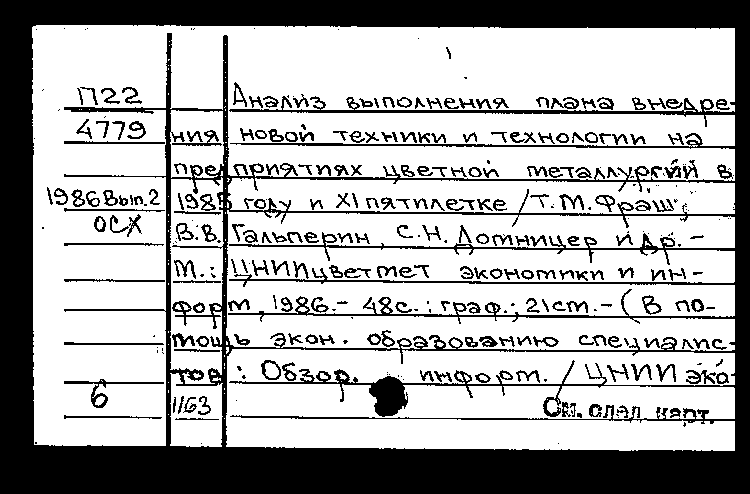 П22 Анализ выполнения плана внедре-
4779 ния новой техники и технологии на
предприятиях цветной металлургии в
1986 Вып.2 1985 году и XI пятилетке / Т.М. Фраш,
ОСХ В.В. Гальперин, С.Н. Дотницер и др. -
М.: ЦНИИцветмет экономики и ин-
форм, 1986. - 48с.: граф.; 21см. - (В по-
мощь экон. образованию специалис-
тов: Обзор. информ. / ЦНИИ эко-
6 1163 См. след. карт.